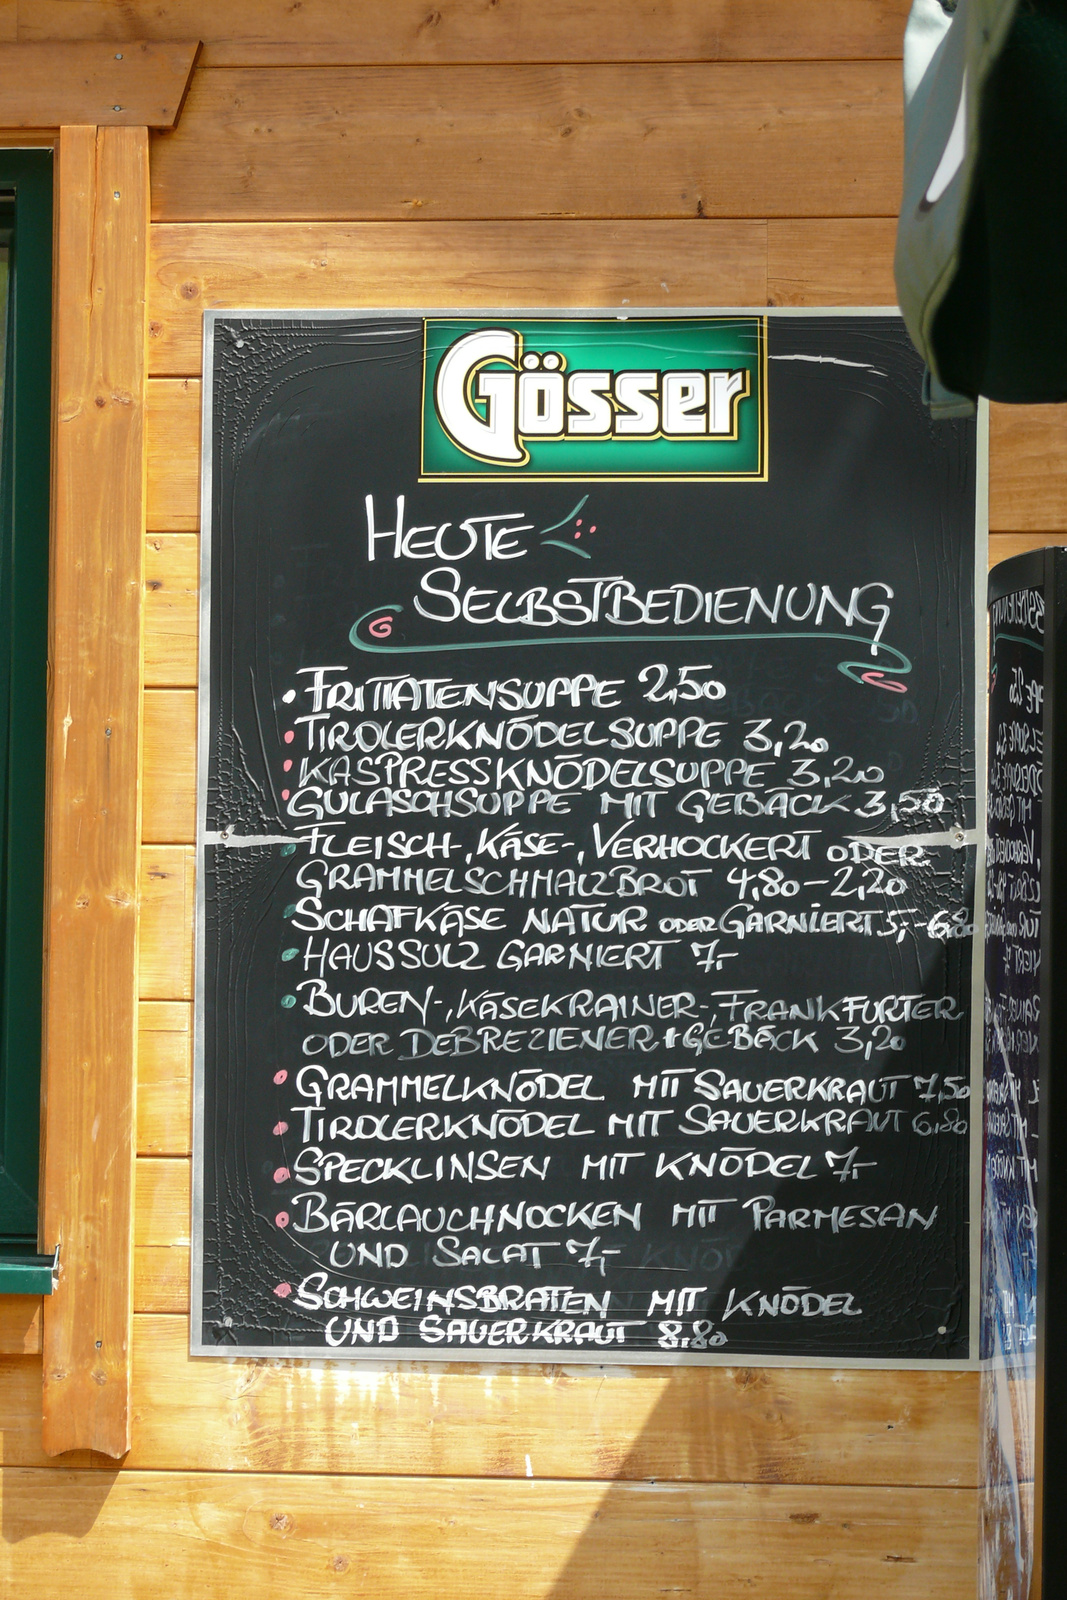 Gösser
HEUTE
SELBSTBEDIENUNG
• FRITTATENSUPPE 2,50
• TIROLERKNÖDELSUPPE 3,20
• KASPRESSKNÖDELSUPPE 3,20
• GULASCHSUPPE MIT GEBÄCK 3,50
• FLEISCH-, KÄSE-, VERHOCKERT ODER
GRAMMELSCHMALZBROT 4,80-2,20
• SCHAFKÄSE NATUR ODER GARNIERT 5,- 6,80
• HAUSSULZ GARNIERT 7,-
• BUREN-, KÄSEKRAINER-, FRANKFURTER
ODER DEBREZIENER + GEBÄCK 3,20
• GRAMMELKNÖDEL MIT SAUERKRAUT 7,50
• TIROLERKNÖDEL MIT SAUERKRAUT 6,80
• SPECKLINSEN MIT KNÖDEL 7,-
• BÄRLAUCHNOCKEN MIT PARMESAN
UND SALAT 7,-
• SCHWEINSBRATEN MIT KNÖDEL
UND SAUERKRAUT 8,80